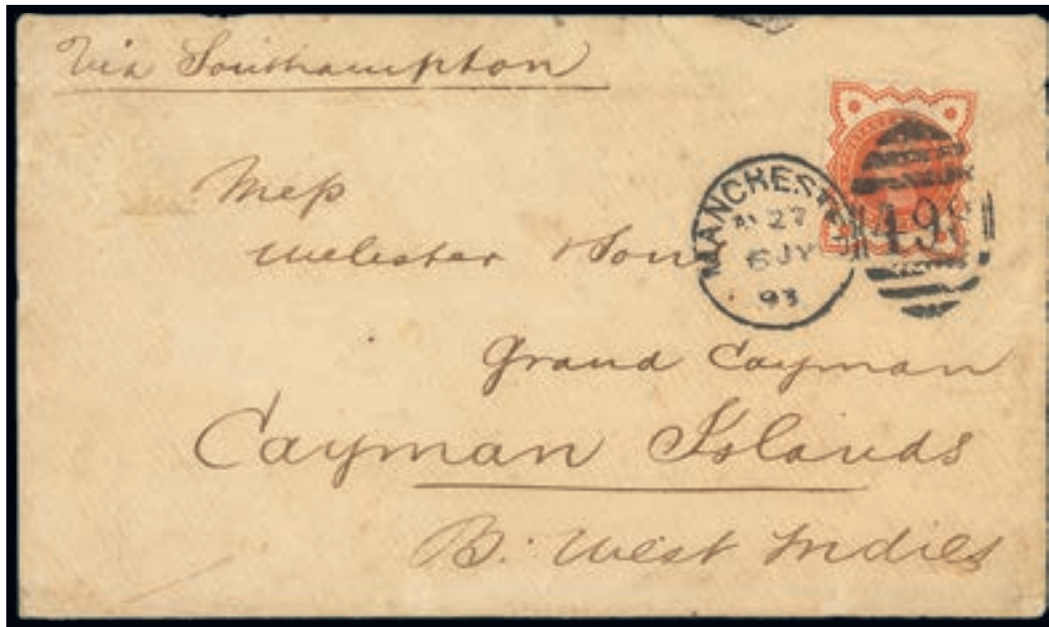 Via Southampton
Mess
Webster & Sons
Grand Cayman
Cayman Islands
B. West Indies
MANCHESTER
27
6 JY
93
498